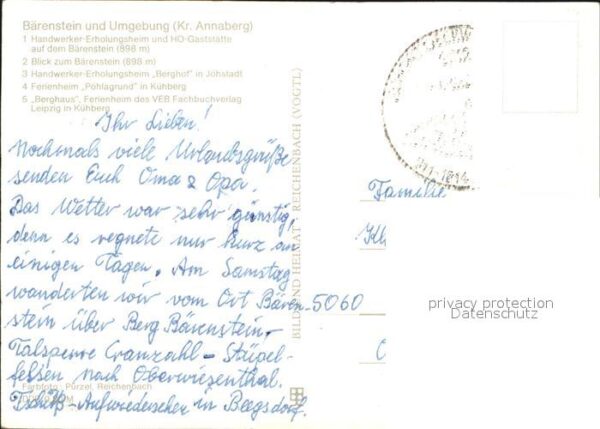 Bärenstein und Umgebung (Kr. Annaberg)
1 Handwerker-Erholungsheim und HO-Gaststätte
auf dem Bärenstein (898 m)
2 Blick zum Bärenstein (898 m)
3 Handwerker-Erholungsheim „Berghof" in Jöhstadt
4 Ferienheim „Pohlagrund" in Kühberg
5 „Berghaus", Ferienheim des VEB Fachbuchverlag
Leipzig in Kühberg
Ihr Lieben!
Nochmals viele Urlaubsgrüße
senden Euch Oma & Opa.
Das Wetter war sehr günstig,
denn es regnete nur kurz an
einigen Tagen. Am Samstag
wanderten wir vom Ort Bären-
stein über Berg Bärenstein-
Talsperre Cranzahl - Stüpel-
felsen nach Oberwiesenthal.
Tschüß-Aufwiedersehen in Beegsdorf.
Farbfoto: Pürzel, Reichenbach
BILD UND HEIMAT REICHENBACH (VOGTL)
Familie
5060
privacy protection
Datenschutz